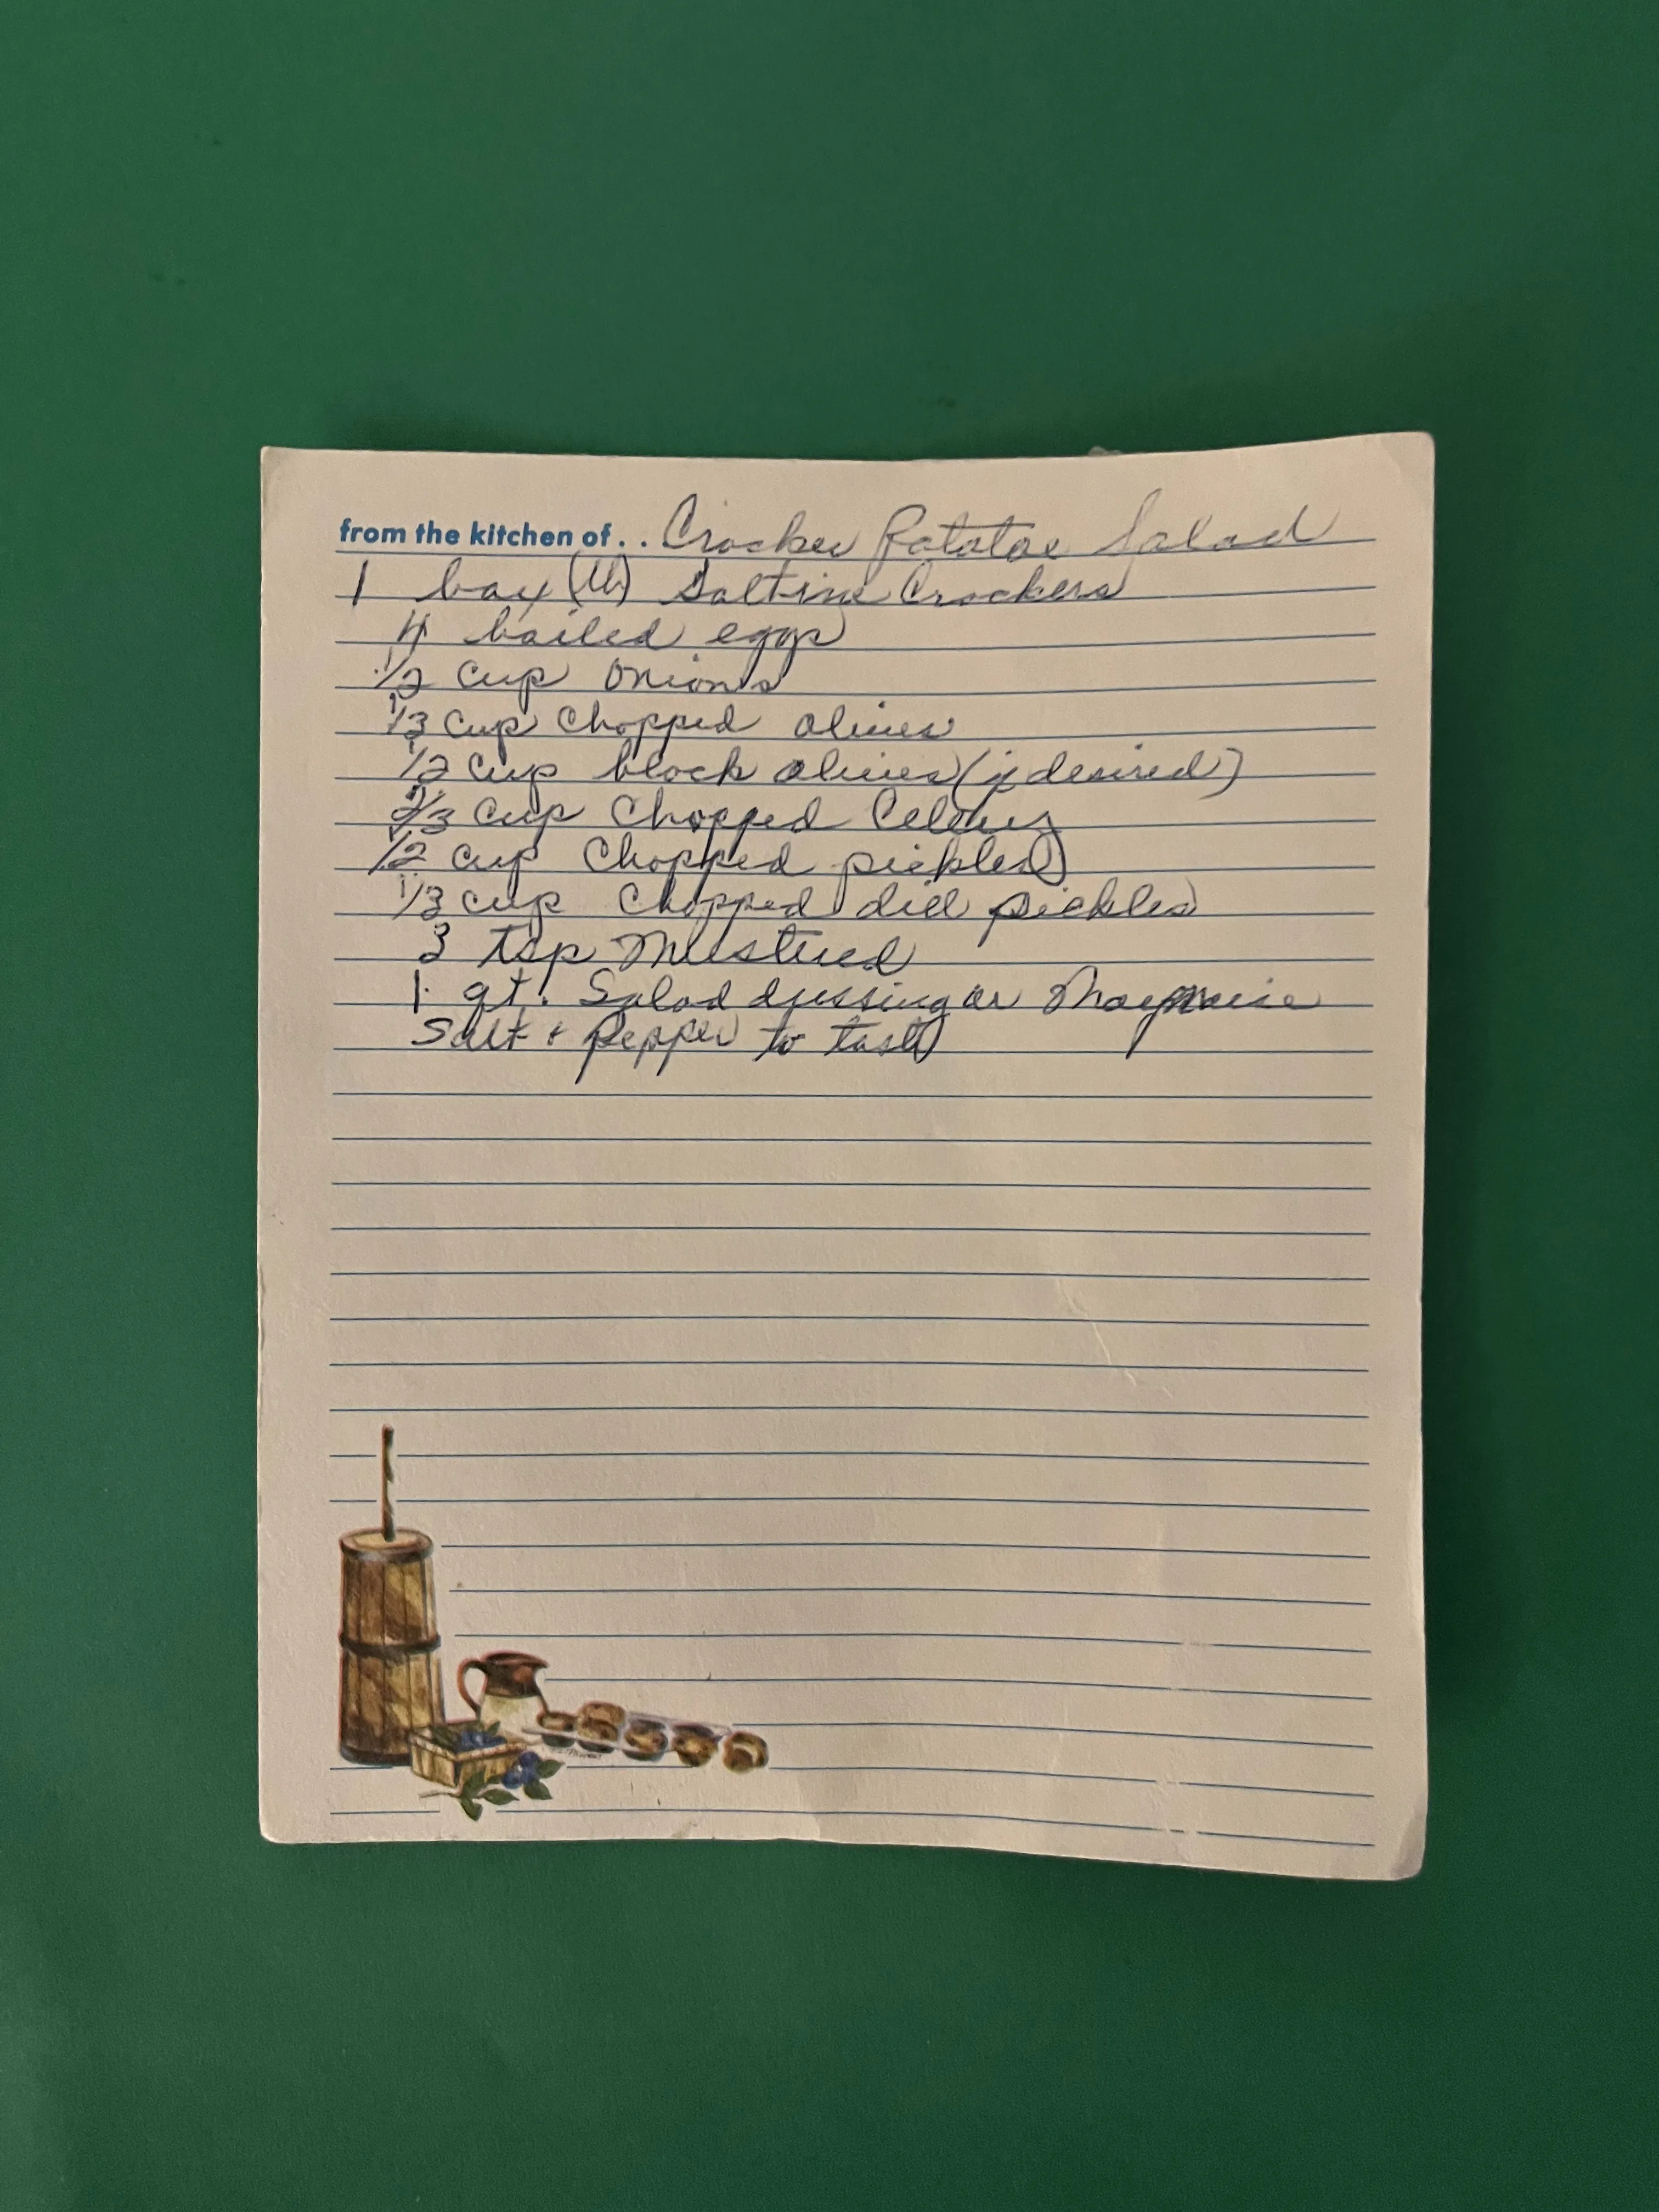 from the kitchen of.. Cracker Potatoe Salad
1 box (lb) Saltine Crackers
4 boiled eggs
1/2 cup onions
1/3 cup chopped olives
1/2 cup black olives (if desired)
2/3 cup chopped Celery
1/2 cup chopped pickles
1/3 cup chopped dill pickles
3 tsp Musturd
1 qt. Salad dressing or
Salt & Pepper to taste